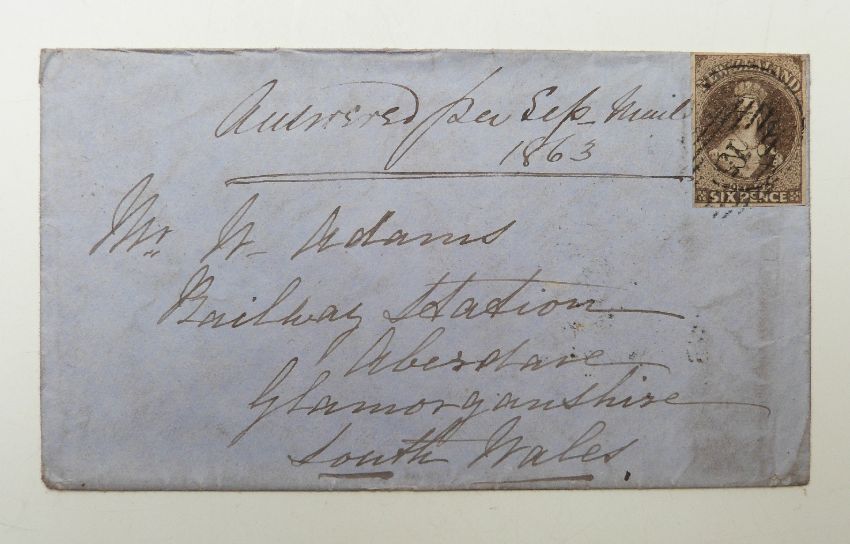 Answered per Sep Mail
1863
NEW ZEALAND
SIX PENCE
Mr W Adams
Railway Station
Aberdare
Glamorganshire
South Wales.